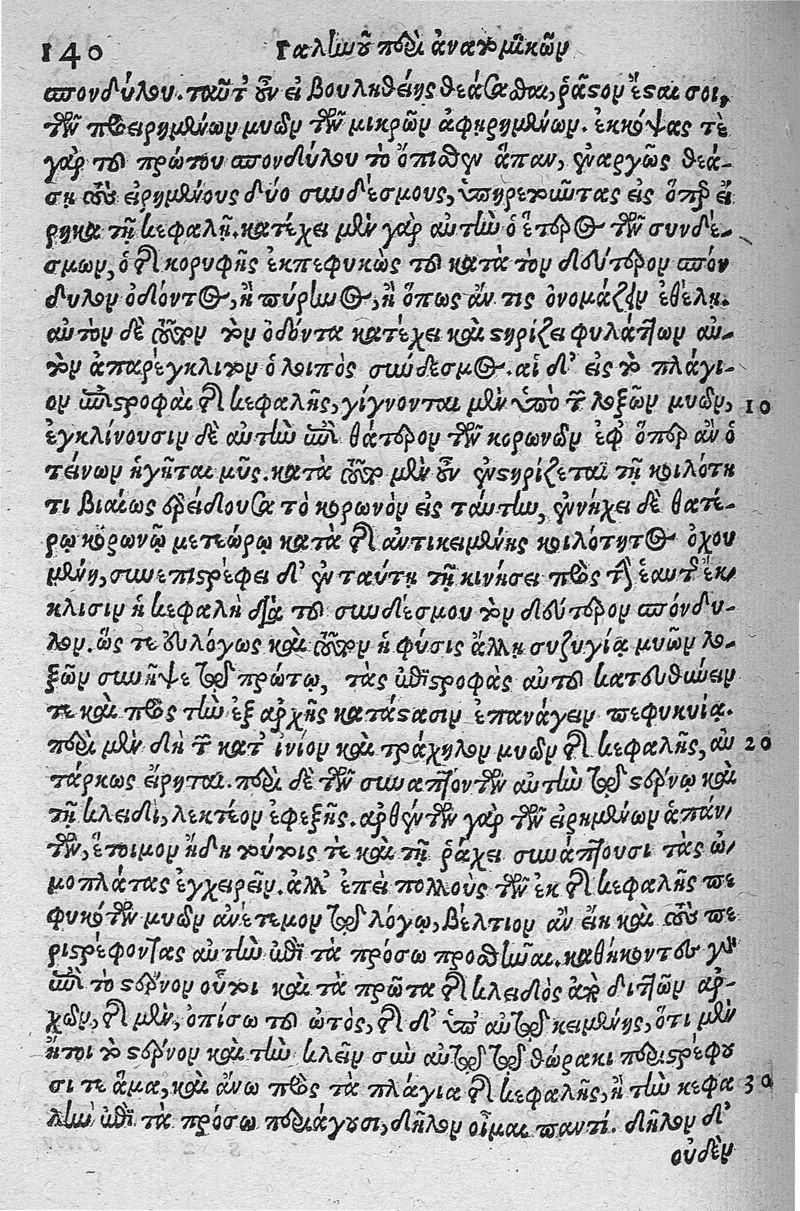 140 Γαλίωῦ περὶ ἀνατομικῶν
σπονδύλου. ταῦτ᾽ οὖν εἰ βουληθείης θεάσασθαι, ῥᾷστον ἔσται σοι,
τῶν προειρημένων μυῶν τῶν μικρῶν ἀφῃρημένων. ἐκκόψας τὲ
γὰρ τοῦ πρώτου σπονδύλου τὸ ὄπισθεν ἅπαν, ἐναργῶς θεά-
σῃ τοὺς εἰρημένους δύο συνδέσμους, ὑπηρετοῦντας εἰς ὅπερ εἴ
ρηκα τῇ κεφαλῇ. κατέχει μὲν γὰρ αὐτὴν ὁ ἕτερος τῶν συνδέ-
σμων, ὁ τῆς κορυφῆς ἐκπεφυκὼς τοῦ κατὰ τὸν δεύτερον σπόν
δυλον ὀδόντος, ἢ πύρηνος, ἢ ὅπως ἄν τις ὀνομάζειν ἐθέλῃ.
αὐτὸν δὲ τοῦτον τὸν ὀδόντα κατέχει καὶ στηρίζει φυλάττων αὐ-
τὸν ἀπαρέγκλιτον ὁ λοιπὸς σύνδεσμος. αἱ δ᾽ εἰς τὸ πλάγι-
ον ἐπιστροφαὶ τῆς κεφαλῆς, γίγνονται μὲν ὑπὸ τῶν λοξῶν μυῶν, 10
ἐγκλίνουσιν δὲ αὐτὴν ἐπὶ θάτερον τῶν κορωνῶν ἐφ᾽ ὅπερ ἂν ὁ
τείνων ἡγῆται μῦς. κατὰ τοῦτο μὲν οὖν ἐνστηρίζεται τῇ κοιλότη
τι βιαίως ἐρείδουσα τὸ κορωνὸν εἰς ταύτην, ἐννήχει δὲ θατέ-
ρῳ κορωνῷ μετεώρῳ κατὰ τῆς ἀντικειμένης κοιλότητος ὀχου
μένη, συνεπιστρέφει δ᾽ ἐν ταύτῃ τῇ κινήσει πρὸς τὴν ἑαυτῆς ἔκ-
κλισιν ἡ κεφαλὴ διὰ τοῦ συνδέσμου τὸν δεύτερον σπόνδυ-
λον. ὥς τε εὐλόγως καὶ τοῦτον ἡ φύσις ἄλλῃ συζυγίᾳ μυῶν λο-
ξῶν συνῆψε τῷ πρώτῳ, τὰς ἐπιστροφὰς αὐτοῦ κατευθύνειν
τε καὶ πρὸς τὴν ἐξ ἀρχῆς κατάστασιν ἐπανάγειν πεφυκυίᾳ.
περὶ μὲν δὴ τῶν κατ᾽ ἰνίον καὶ τράχηλον μυῶν τῆς κεφαλῆς, αὐ 20
τάρκως εἴρηται. περὶ δὲ τῶν συναπτόντων αὐτὴν τῷ στέρνῳ καὶ
τῇ κλειδὶ, λεκτέον ἐφεξῆς. ἀρθέντων γὰρ τῶν εἰρημένων ἁπάν-
των, ἕτοιμον ἤδη τούτοις τε καὶ τῇ ῥάχει συνάπτουσι τὰς ὠ-
μοπλάτας ἐγχειρεῖν. ἀλλ᾽ ἐπεὶ πολλοὺς τῶν ἐκ τῆς κεφαλῆς πε
φυκότων μυῶν ἀνέτεμον τῷ λόγῳ, βέλτιον ἂν εἴη καὶ τοὺς πε
ριστρέφοντας αὐτὴν ἐπὶ τὰ πρόσω προσθεῖναι. καθήκοντες γὰρ
ἐπὶ τὸ στέρνον οὗτοι καὶ τὰ πρῶτα τῆς κλειδὸς ἀπὸ διττῶν ἀρ-
χῶν, τῆς μὲν, ὀπίσω τοῦ ὠτὸς, τῆς δ᾽ ὑπ᾽ αὐτῷ κειμένης, ὅτι μὲν
ἤτοι τὸ στέρνον καὶ τὴν κλεῖν σὺν αὐτῷ τῷ θώρακι περιστρέφου
σί τε ἅμα, καὶ ἄνω πρὸς τὰ πλάγια τῆς κεφαλῆς, ἢ τὴν κεφα 30
λὴν ἐπὶ τὰ πρόσω περιάγουσι, δῆλον οἶμαι παντί. δῆλον δ᾽
οὐδὲν